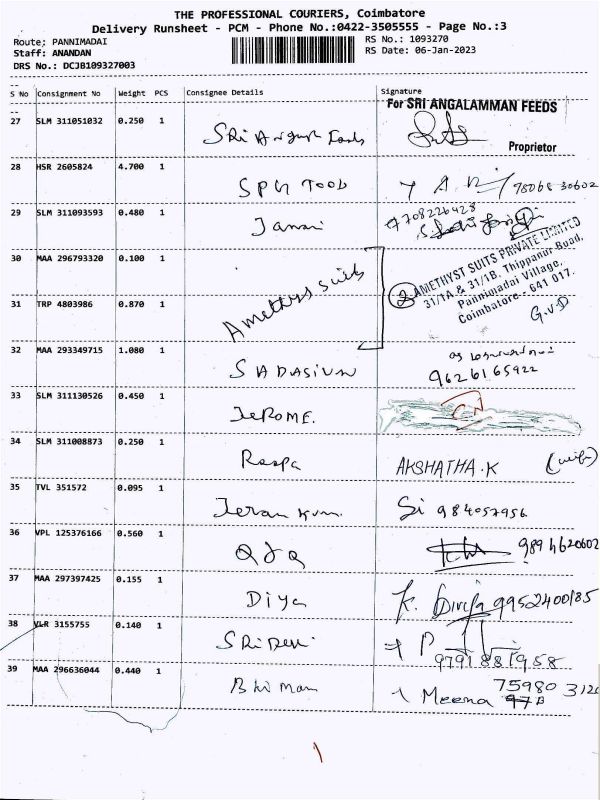 THE PROFESSIONAL COURIERS, Coimbatore
Delivery Runsheet - PCM - Phone No.:0422-3505555 - Page No.:3
Route; PANNIMADAI
RS No.: 1093270
Staff: ANANDAN
RS Date: 06-Jan-2023
DRS No.: DCJB109327003
S No Consignment No Weight PCS Consignee Details Signature
For SRI ANGALAMMAN FEEDS
27 SLM 311051032 0.250 1 SRi
Proprietor
28 HSR 2605824 4.700 1 SPG TOOL
29 SLM 311093593 0.480 1 Janani 7708226428
30 MAA 296793320 0.100 1
Amethyst Suits
2 AMETHYST SUITS PRIVATE LIMITED
31/1A & 31/1B, Thippanur Road,
Pannimadai Village,
Coimbatore - 641 017.
G.V.D
31 TRP 4803986 0.870 1
32 MAA 293349715 1.080 1 SADASIVAN
9626165922
33 SLM 311130526 0.450 1 JeROME.
34 SLM 311008873 0.250 1 AKSHATHA.K (wife)
35 TVL 351572 0.095 1 Si 984057956
36 VPL 125376166 0.560 1
37 MAA 297397425 0.155 1 Diya K. Divya 9952400185
38 VLR 3155755 0.140 1 SRiDevi P
9791881958
39 MAA 296636044 0.440 1 Meena
75980 3126